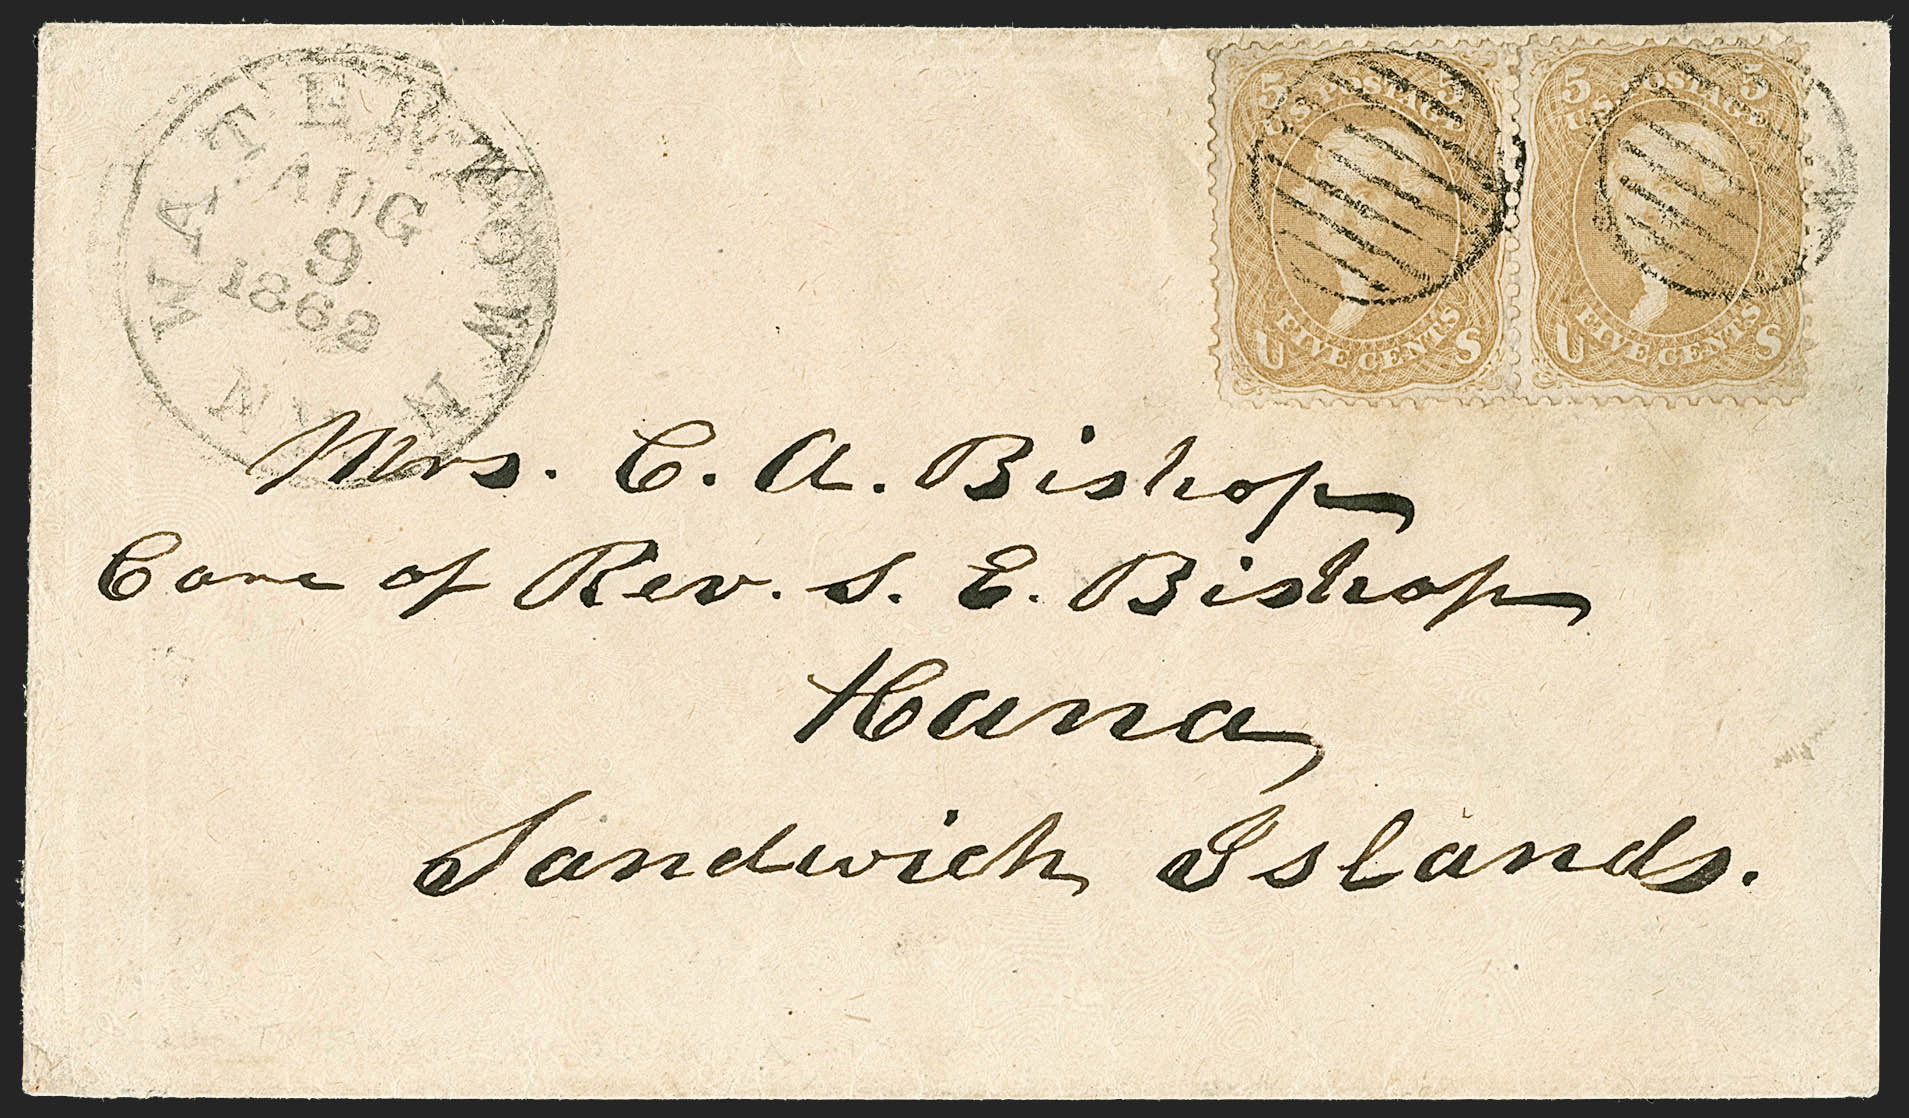 WATERTOWN
AUG
9
1862
N.Y.
5 5
U.S. POSTAGE
FIVE CENTS
U S
5 5
U.S. POSTAGE
FIVE CENTS
U S
Mrs. C. A. Bishop
Care of Rev. S. E. Bishop
Hana,
Sandwich Islands.